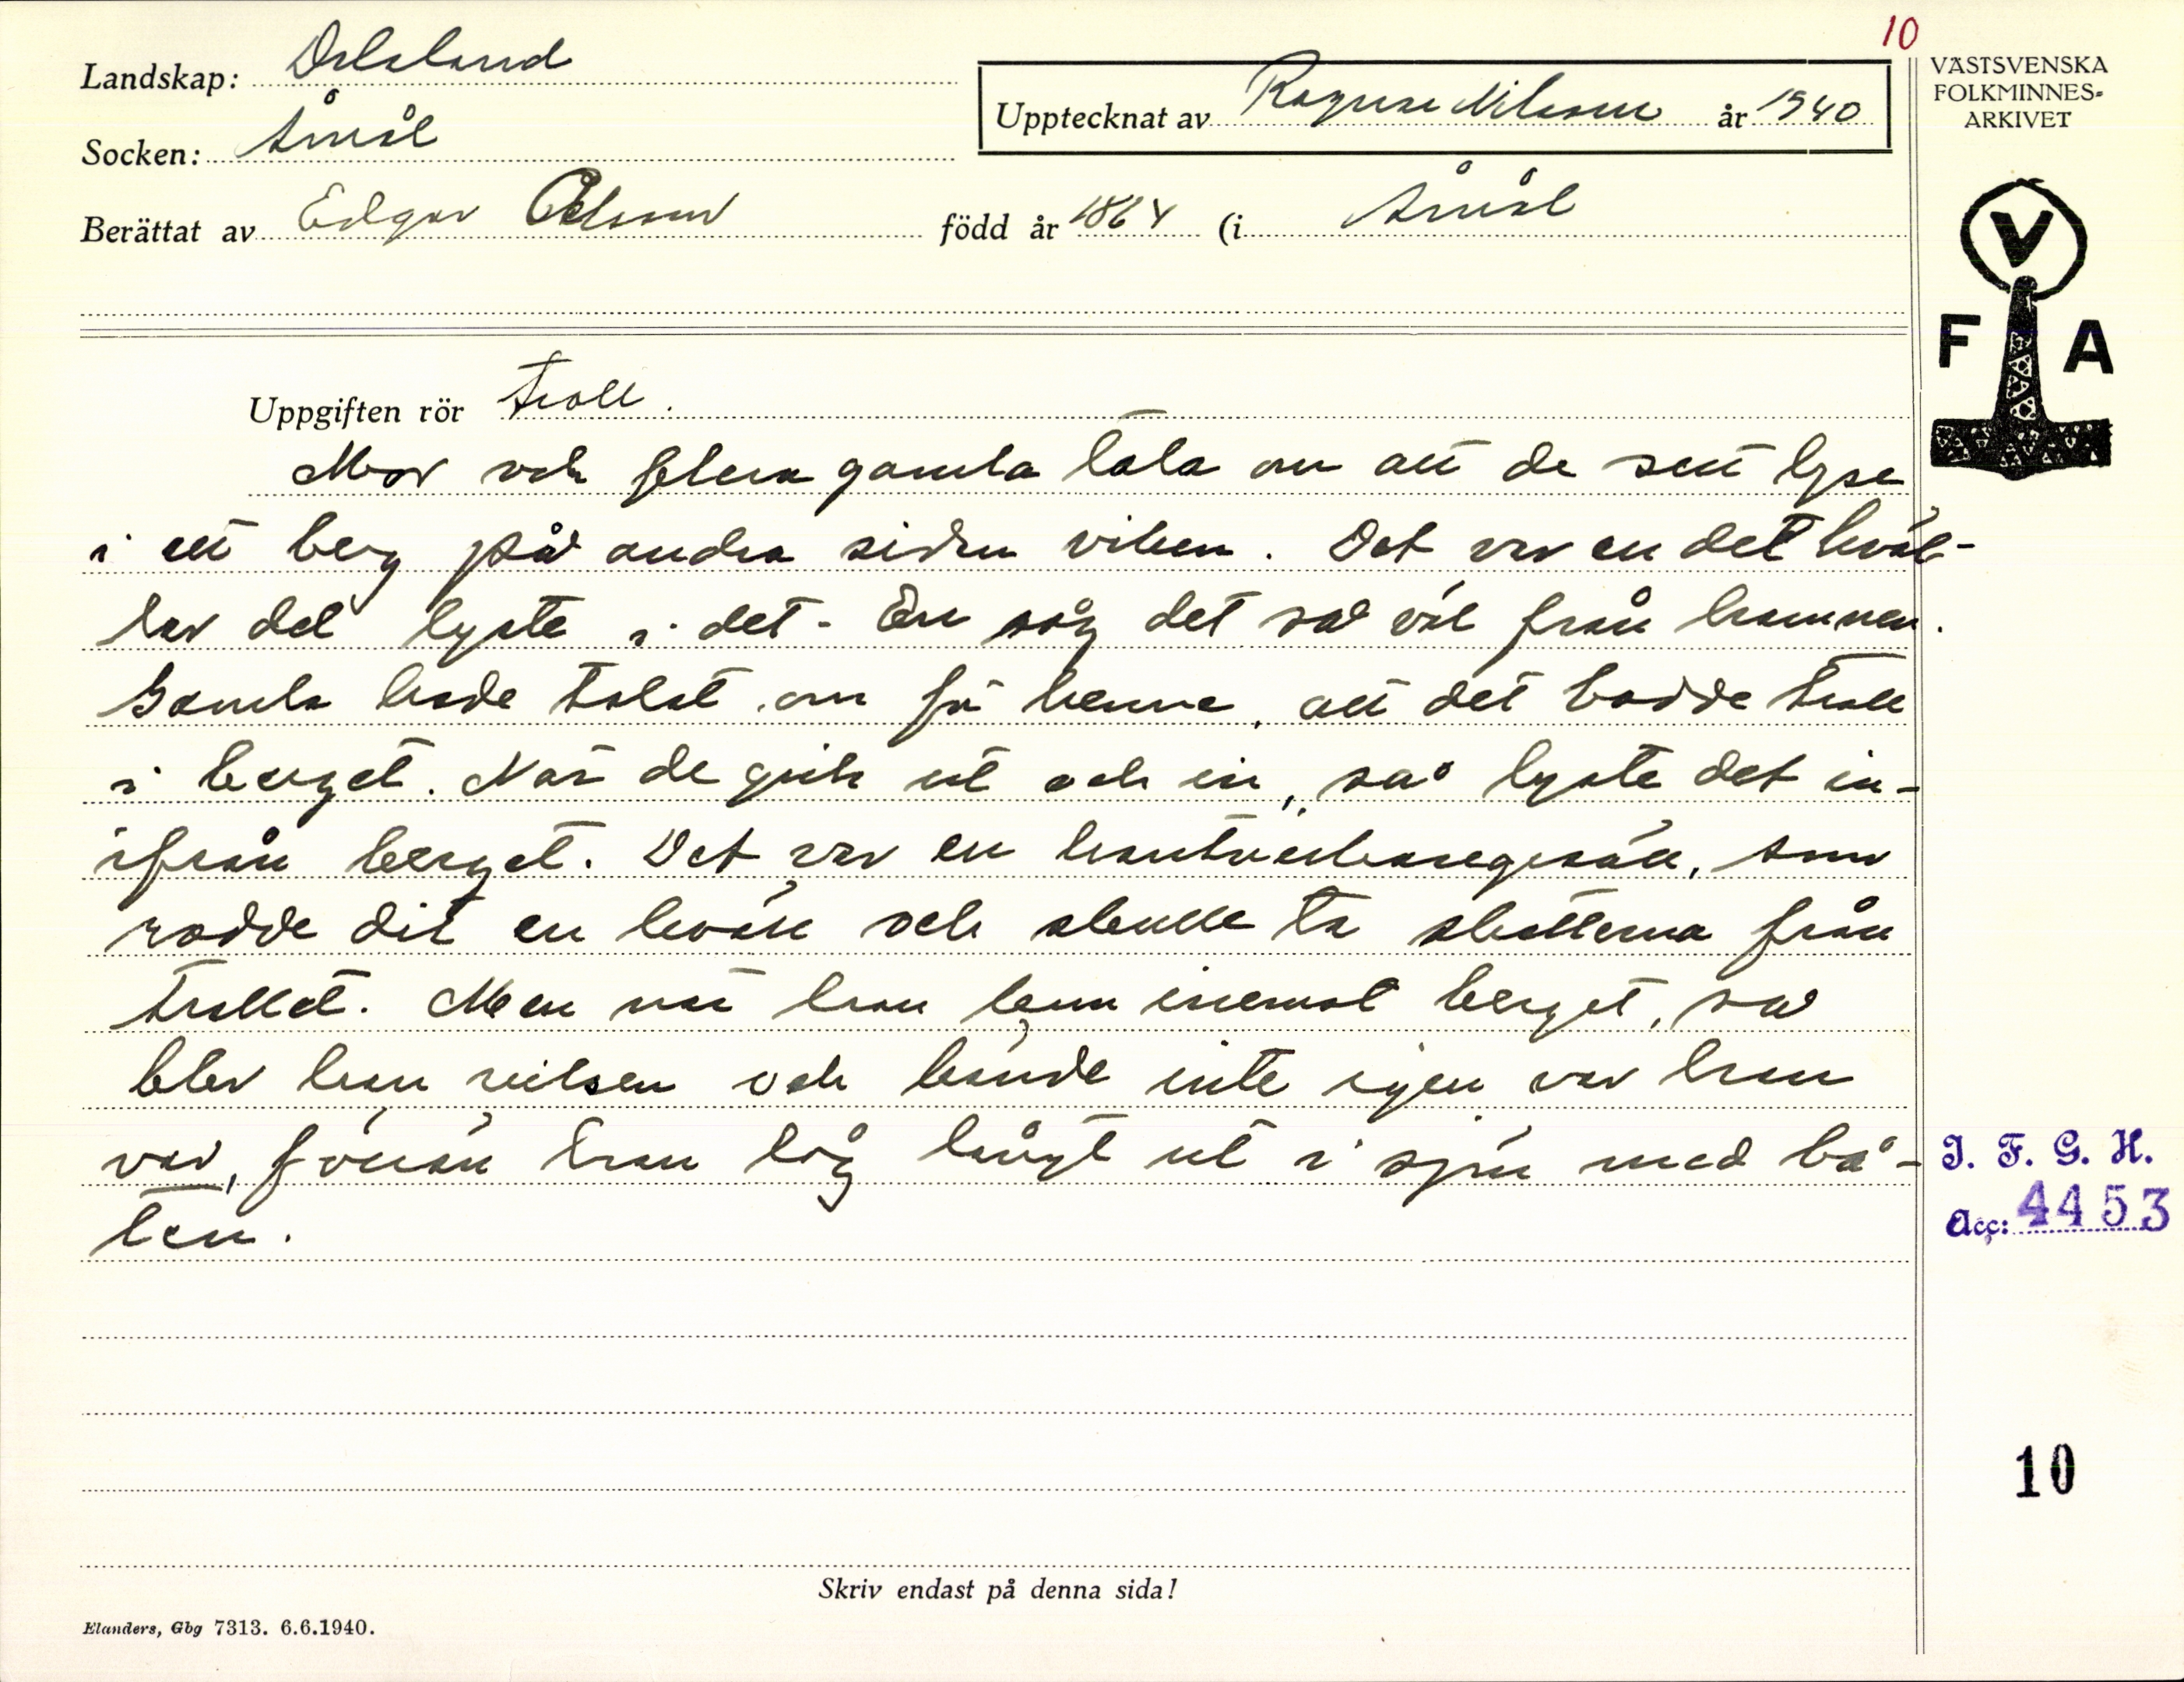 10
Landskap: Dalsland
Socken: Åmål
Upptecknat av Ragnar Nilsson år 1940
Berättat av Edgar Olsson född år 1864 (i Åmål
VÄSTSVENSKA
FOLKMINNES-
ARKIVET
V
F A
Uppgiften rör Troll.
Mor och flera gamla tala om att de sett lyse
i ett berg på andra sidan viken. Det var en del kväl-
lar det lyste i det. En såg det så väl från hamnen.
Gamla hade talat om för henne, att det bodde troll
i berget. När de gick ut och in, så lyste det in-
ifrån berget. Det var en hantverkaregesäll, som
rodde dit en kväll och skulle ta skatterna från
trollet. Men när han kom inemot berget, så
blev han vilsen och kände inte igen var han
var, förrän han låg långt ut i sjön med bå-
ten.
I. F. G. H.
Acc: 4453
10
Skriv endast på denna sida!
Elanders, Gbg 7313. 6.6.1940.